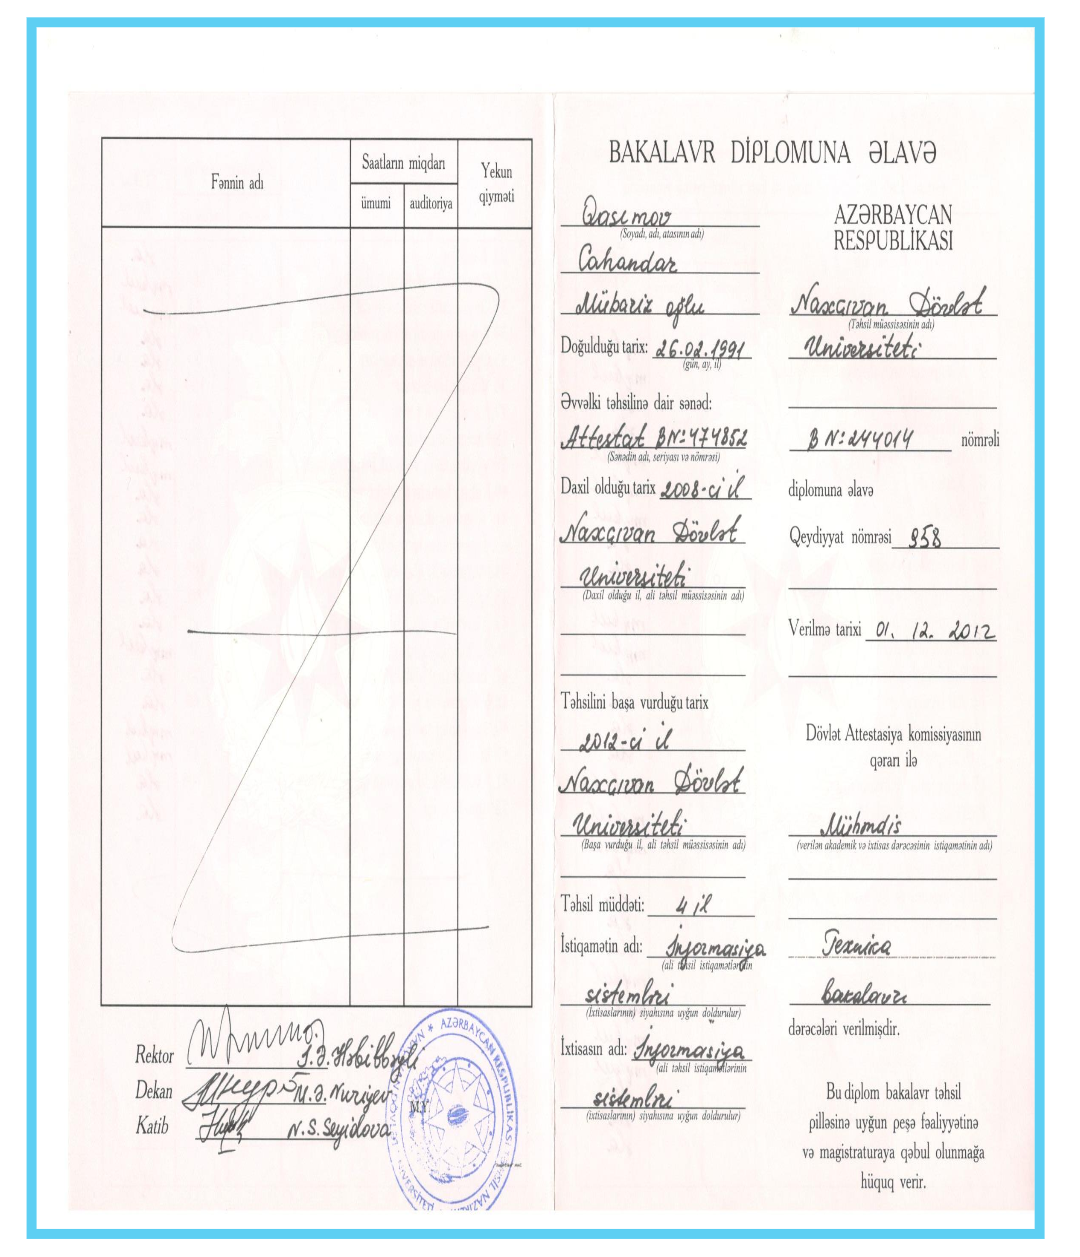 Fənnin adı
Saatların miqdarı
ümumi
auditoriya
Yekun
qiyməti
Rektor İ.Ə.Həbibbəyli
Dekan M.Ə.Nuriyev
Katib N.S.Seyidova
M.Y.
BAKALAVR DİPLOMUNA ƏLAVƏ
Qasımov
(Soyadı, adı, atasının adı)
Cahandar
Mübariz oğlu
Doğulduğu tarix: 26.02.1991
(gün, ay, il)
Əvvəlki təhsilinə dair sənəd:
Attestat B№:474852
(Sənədin adı, seriyası və nömrəsi)
Daxil olduğu tarix 2008-ci il
Naxçıvan Dövlət
Universiteti
(Daxil olduğu il, ali təhsil müəssisəsinin adı)
Təhsilini başa vurduğu tarix
2012-ci il
Naxçıvan Dövlət
Universiteti
(Başa vurduğu il, ali təhsil müəssisəsinin adı)
Təhsil müddəti: 4 il
İstiqamətin adı: İnformasiya
(ali təhsil istiqamətlərinin
sistemləri
(İxtisaslarının) siyahısına uyğun doldurulur)
İxtisasın adı: İnformasiya
(ali təhsil istiqamətlərinin
sistemləri
(ixtisaslarının) siyahısına uyğun doldurulur)
AZƏRBAYCAN
RESPUBLİKASI
Naxçıvan Dövlət
(Təhsil müəssisəsinin adı)
Universiteti
B №:244014 nömrəli
diplomuna əlavə
Qeydiyyat nömrəsi 958
Verilmə tarixi 01. 12. 2012
Dövlət Attestasiya komissiyasının
qərarı ilə
Mühəndis
(verilən akademik və ixtisas dərəcəsinin istiqamətinin adı)
Texnica
Bakalavrı
dərəcələri verilmişdir.
Bu diplom bakalavr təhsil
pilləsinə uyğun peşə fəaliyyətinə
və magistraturaya qəbul olunmağa
hüquq verir.
AZƏRBAYCAN RESPUBLİKASI